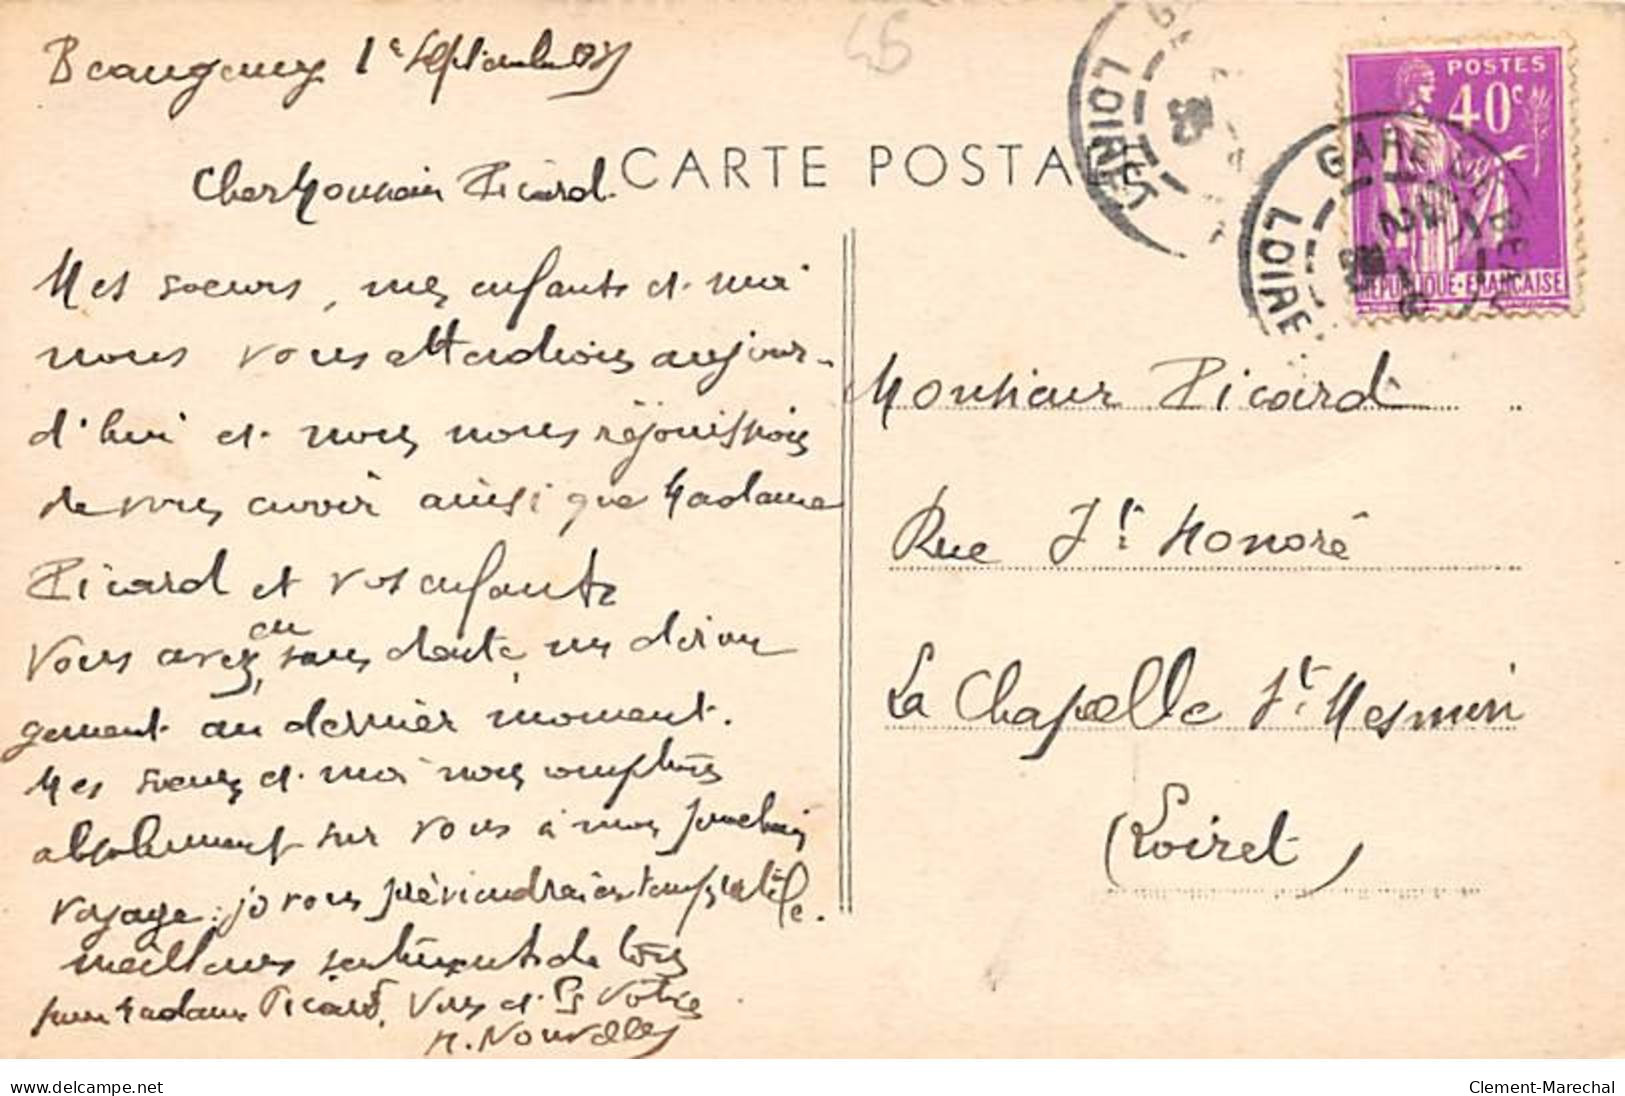 45
Beaugency 1er Septembre
CARTE POSTALE
Cher Monsieur Ricard.
Mes soeurs, mes enfants et moi
nous vous attendions aujour-
d'hui et nous nous réjouissions
de vous avoir ainsi que Madame
Ricard et vos enfants
Vous avez eu, sans doute, un déran
gement au dernier moment.
Mes soeurs et moi nous comptons
absolument sur vous à mon prochain
voyage: je vous préviendrai en temps utile.
meilleurs sentiments de tous
pour Madame Ricard, Vous et Votre
M. Nouvelles
POSTES
40c
REPUBLIQUE·FRANCAISE
GARE DE BEAU
LOIRET
LOIRET
Monsieur Ricard
Rue St Honoré
La Chapelle St. Mesmin
(Loiret)
www.delcampe.net
Clement-Marechal